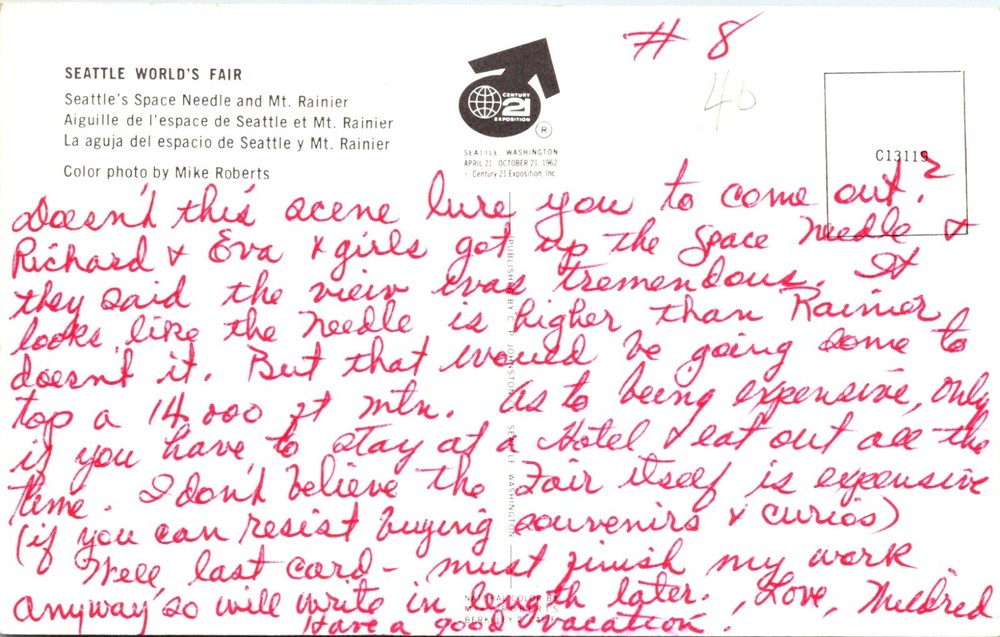 # 8
40
SEATTLE WORLD'S FAIR
Seattle's Space Needle and Mt. Rainier
Aiguille de l'espace de Seattle et Mt. Rainier
La aguja del espacio de Seattle y Mt. Rainier
Color photo by Mike Roberts
CENTURY
21
EXPOSITION
®
SEATTLE, WASHINGTON
APRIL 21 OCTOBER 21, 1962
© Century 21 Exposition, Inc
C13119
Doesn't this scene lure you to come out?
Richard & Eva & girls got up the Space Needle &
they said the view was tremendous. It
looks like the Needle is higher than Rainier
doesnt it. But that would be going some to
top a 14,000 ft mtn. As to being expensive, only
if you have to stay at a Hotel & eat out all the
time. I don't believe the Fair itself is expensive
(if you can resist buying souvenirs & curios)
Well last card - must finish my work
anyway so will write in length later. , Love, Mildred
Have a good vacation.
PUBLISHED BY C. JOHNSTON, SEATTLE, WASHINGTON
NATURAL COLOR BY
BERKELEY